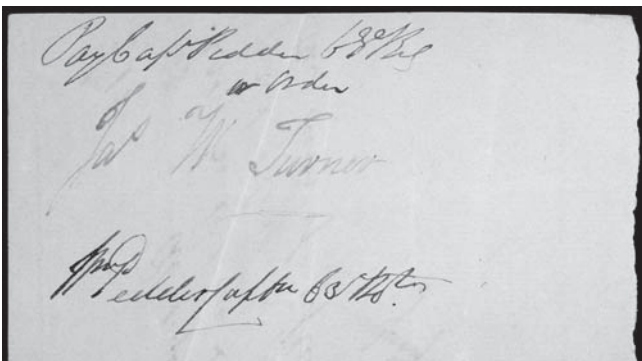 Pay Capt Pedder 63 Reg
or Order
Jas W Turner
Pedder Captn 63 Regt